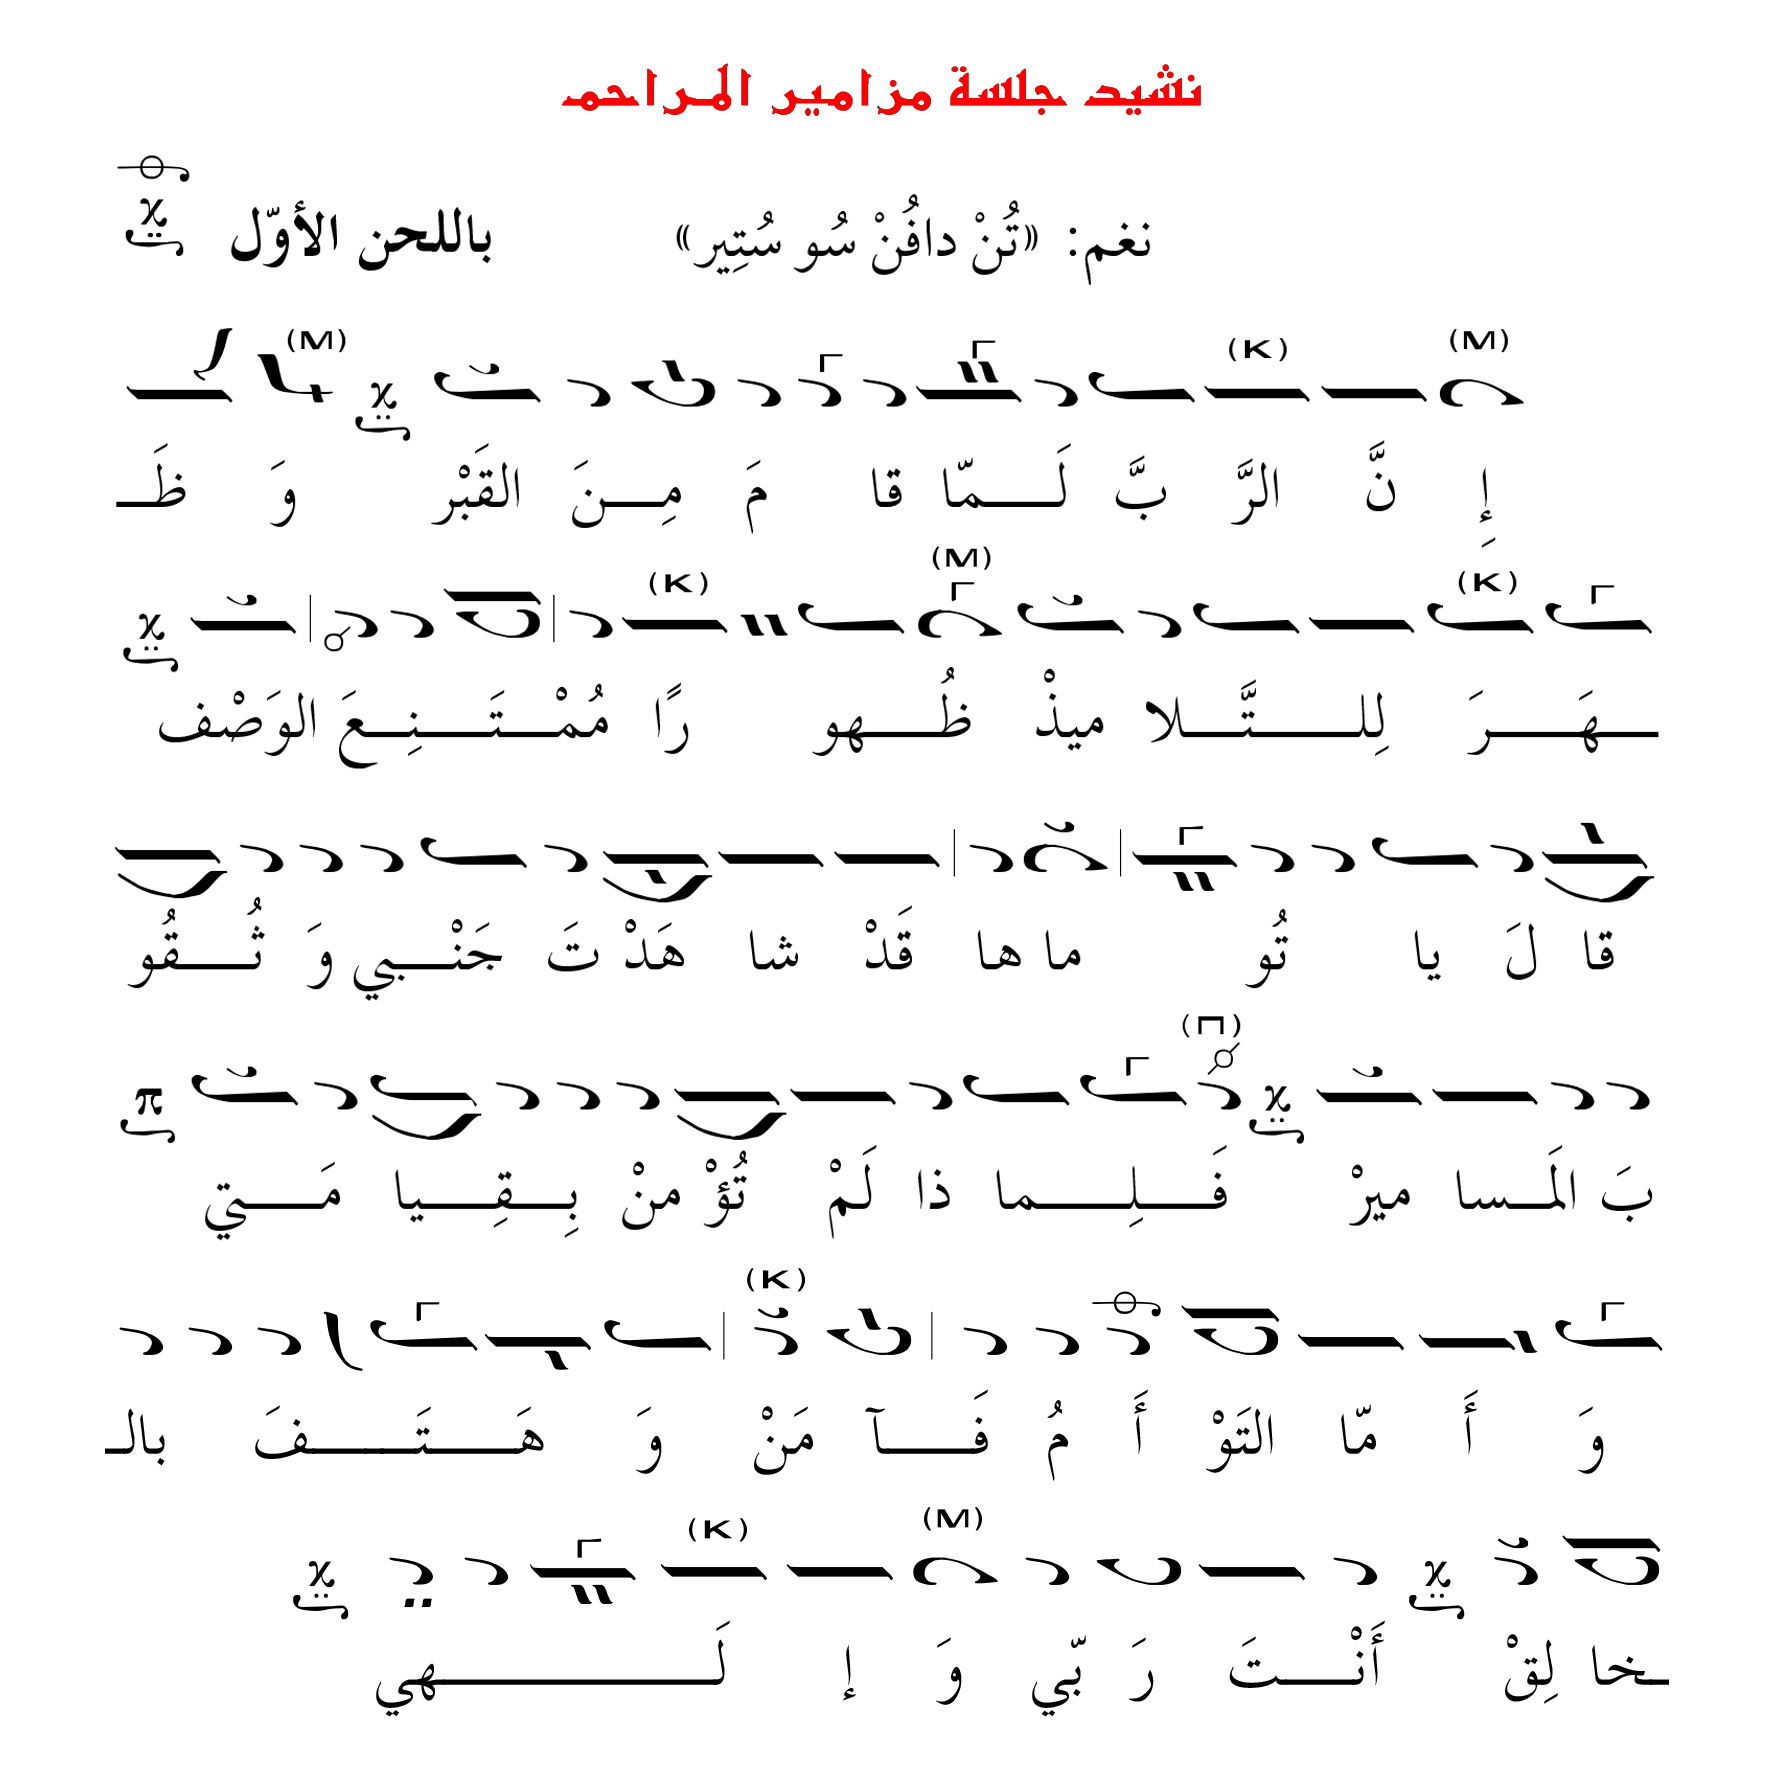 نشيد جلسة مزامير المراحم
نغم: «تُنْ دافُنْ سُو سُتِير» باللحن الأوّل
(M) (K) (M)
إِ نَّ الرَّ بَّ لَـــمّا قا مَ مِـــنَ القَبْر وَ ظَـ
(K) (M) (K)
ـهَـــرَ لِلـــتَّـــلا ميذْ ظُـــهو رًا مُمْـــتَـــنِـــعَ الوَصْف
قا لَ يا تُو ما ها قَدْ شا هَدْ تَ جَنْـــبي وَ ثُـــقُو
(Π)
بَ المَـسا ميرْ فَـــلِـــما ذا لَمْ تُؤْ منْ بِـــقِـــيا مَـــتي
(K)
وَ أَ مّا التَوْ أَ مُ فَـــآ مَنْ وَ هَـــتَـــفَ بالـ
(M) (K)
ـخا لِقْ أَنْـــتَ رَ بّي وَ إ لَـــهي